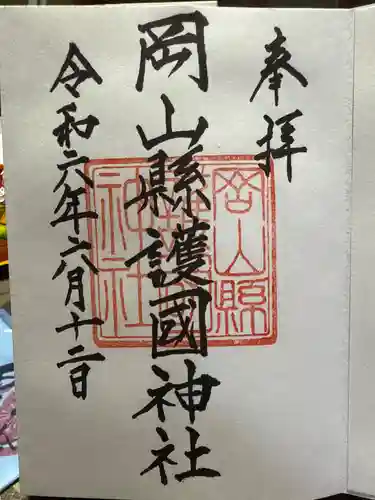 奉拝
岡山縣護國神社
令和六年六月十二日
岡山縣護國神社